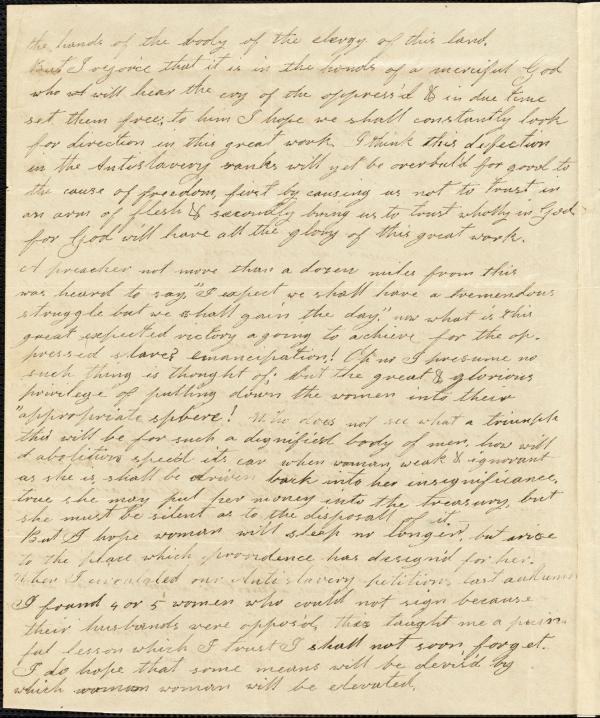 the hands of the body of the clergy of this land.
But I rejoice that it is in the hands of a merciful God
who will hear the cry of the oppress'd & in due time
set them free; to him I hope we shall constantly look
for direction in this great work. I think this defection
in the Antislavery ranks will yet be overbuld for good to
the cause of freedom, first by causing us not to trust in
an arm of flesh & secondly bring us to trust wholly in God
for God will have all the glory of this great work.
A preacher not more than a dozen miles from this
was heard to say, "I expect we shall have a tremendous
struggle but we shall gain the day," now what is this
great expected victory agoing to achieve for the op-
pressed slave? emancipation! Oh no I presume no
such thing is thought of; but the great & glorious
privilege of putting down the women into their
"appropriate sphere! Who does not see what a triumph
this will be for such a dignified body of men, how will
abolition speed its car when woman, weak & ignorant
as she is, shall be driven back into her insignificance,
true she may put her money into the treasury, but
she must be silent as to the disposall of it
But I hope woman will sleep no longer, but arise
to the place which providence has design'd for her.
When I circulated our Anti slavery petitions last autumn
I found 4 or 5 women who could not sign because
their husbands were opposed, this taught me a pain-
ful lesson which I trust I shall not soon forget.
I do hope that some means will be devis'd by
which woman will be elevated.